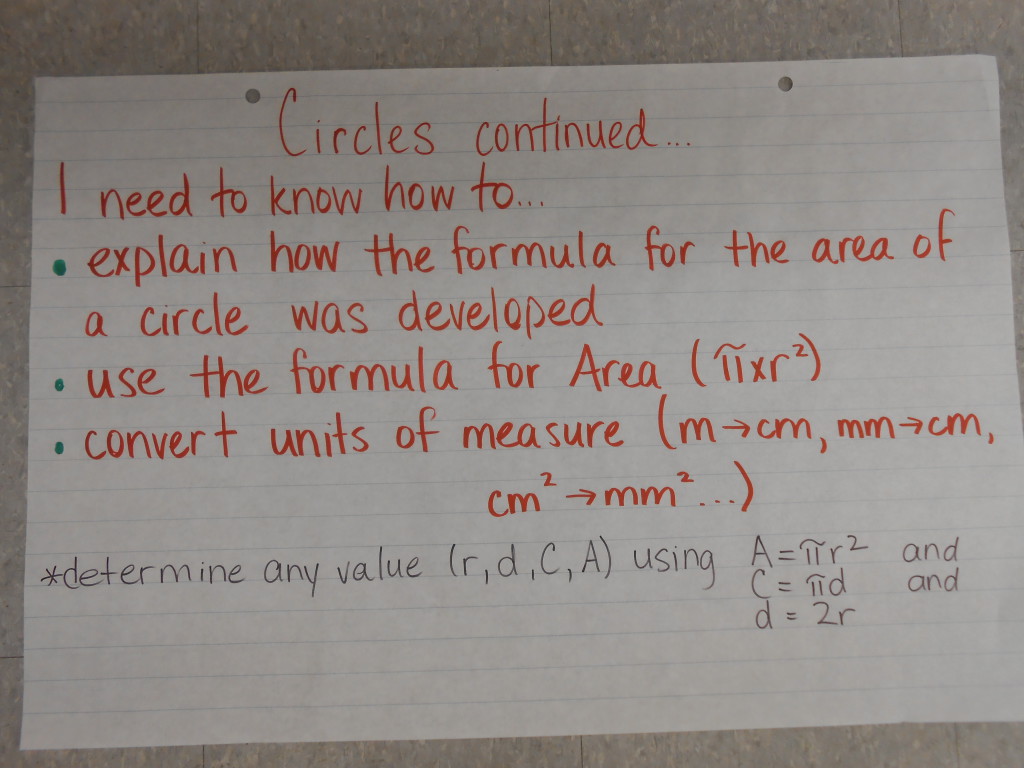 Circles continued...
I need to know how to...
• explain how the formula for the area of
a circle was developed
• use the formula for Area (πxr²)
• convert units of measure (m→cm, mm→cm,
cm²→mm²...)
*determine any value (r,d,C,A) using A=πr² and
C=πd and
d=2r